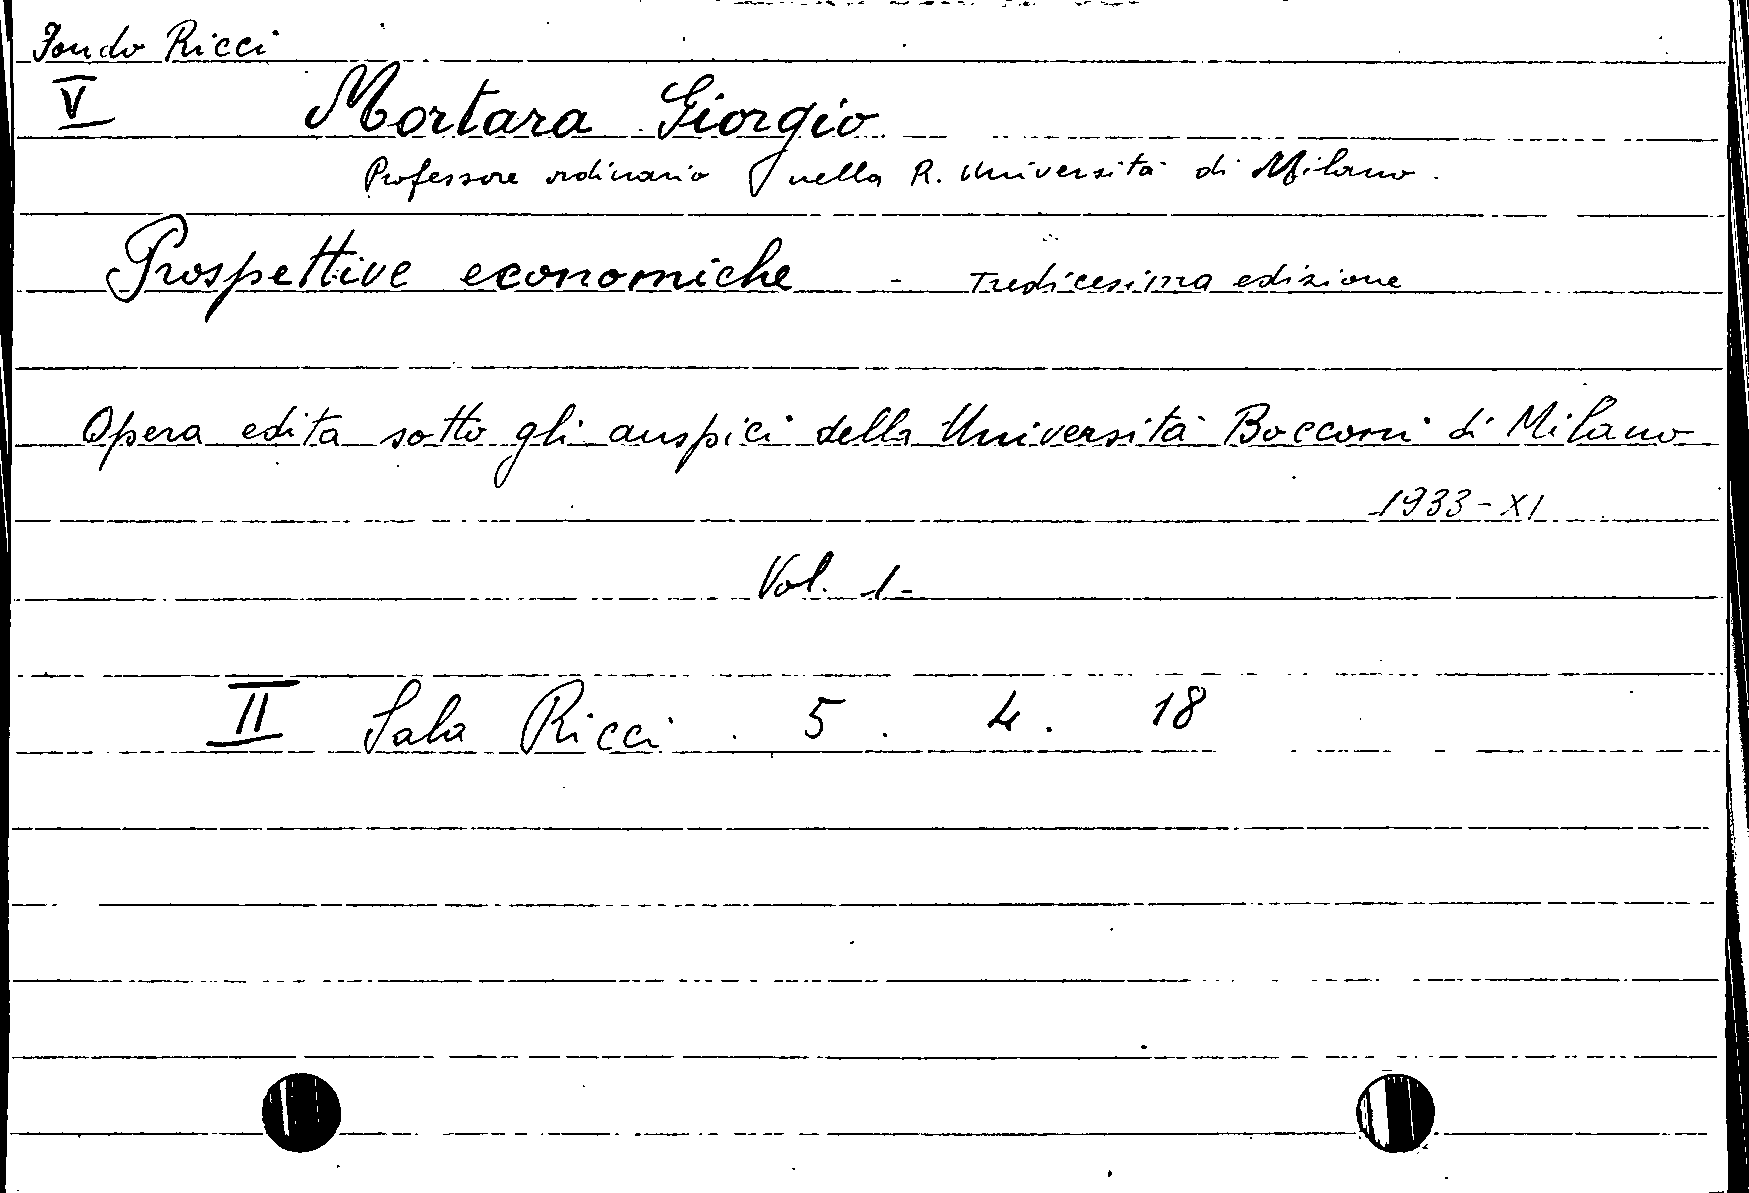 Fondo Ricci
V Mortara Giorgio
Professore ordinario nella R. Università di Milano.
Prospettive economiche - Tredicesima edizione
Opera edita sotto gli auspici della Università Bocconi di Milano
1933-XI
Vol. 1-
II Sala Ricci. 5. 4. 18